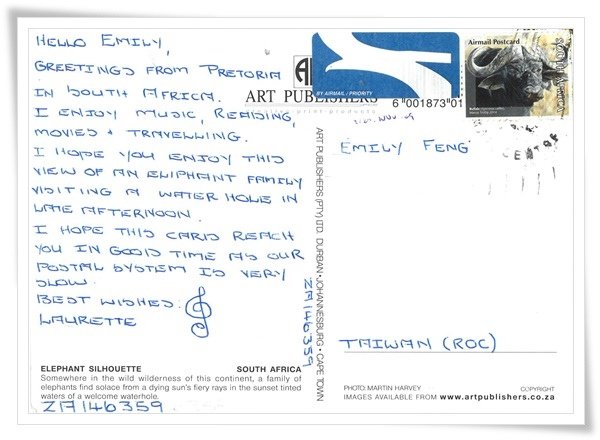 HELLO EMILY,
GREETINGS FROM PRETORIA
IN SOUTH AFRICA.
I ENJOY MUSIC, READING,
MOVIES + TRAVELLING.
I HOPE YOU ENJOY THIS
VIEW OF AN ELIPHANT FAMILY
VISITING A WATER HOLE IN
LATE AFTERNOON.
I HOPE THIS CARD REACH
YOU IN GOOD TIME AS OUR
POSTAL SYSTEM IS VERY
SLOW.
BEST WISHES.
LAURETTE
ELEPHANT SILHOUETTE SOUTH AFRICA
Somewhere in the wild wilderness of this continent, a family of
elephants find solace from a dying sun's fiery rays in the sunset tinted
waters of a welcome waterhole.
ZA146359
BY AIRMAIL / PRIORITY
ART PUBLISHERS
6"001873"01
ART PUBLISHERS (PTY) LTD. DURBAN • JOHANNESBURG • CAPE TOWN
ZA146359
Airmail Postcard
EMILY FENG
TAIWAN (ROC)
PHOTO: MARTIN HARVEY COPYRIGHT
IMAGES AVAILABLE FROM www.artpublishers.co.za